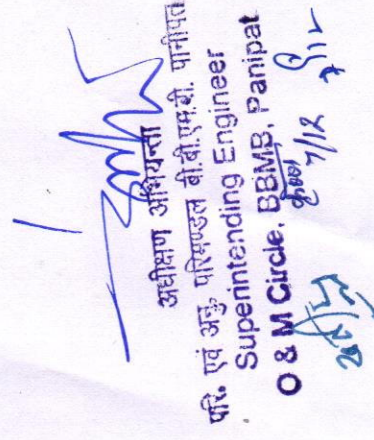 अधीक्षण अभियन्ता
परि. एवं अनु. परिमण्डल बी.बी.एम.बी. पानीपत
Superintending Engineer
O & M Circle, BBMB, Panipat
7/12